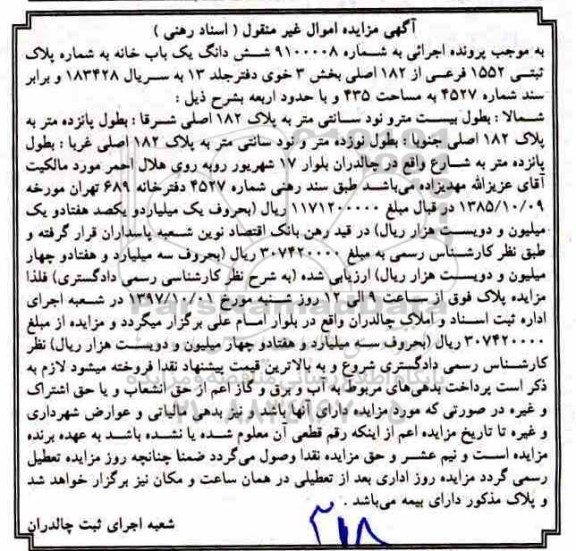 آگهی مزایده اموال غیر منقول ( اسناد رهنی )
به موجب پرونده اجرائی به شماره ۹۱۰۰۰۰۸ شش دانگ یک باب خانه به شماره پلاک
ثبتی ۱۵۵۲ فرعی از ۱۸۲ اصلی بخش ۳ خوی دفترجلد ۱۳ به سریال ۱۸۳۴۲۸ و برابر
سند شماره ۴۵۲۷ به مساحت ۴۳۵ و با حدود اربعه بشرح ذیل :
شمالا : بطول بیست مترو نود سانتی متر به پلاک ۱۸۲ اصلی شرقا : بطول پانزده متر به
پلاک ۱۸۲ اصلی جنوبا : بطول نوزده متر و نود سانتی متر به پلاک ۱۸۲ اصلی غربا : بطول
پانزده متر به شارع واقع در چالدران بلوار ۱۷ شهریور روبه روی هلال احمر مورد مالکیت
آقای عزیزالله مهدیزاده می‌باشد طبق سند رهنی شماره ۴۵۲۷ دفترخانه ۶۸۹ تهران مورخه
۱۳۸۵/۱۰/۰۹ در قبال مبلغ ۱۱۷۱۲۰۰۰۰۰ ریال (بحروف یک میلیاردو یکصد هفتادو یک
میلیون و دویست هزار ریال) در قید رهن بانک اقتصاد نوین شعبه پاسداران قرار گرفته و
طبق نظر کارشناس رسمی به مبلغ ۳۰۷۴۲۰۰۰۰ ریال (بحروف سه میلیارد و هفتادو چهار
میلیون و دویست هزار ریال) ارزیابی شده (به شرح نظر کارشناسی رسمی دادگستری) فلذا
مزایده پلاک فوق از ساعت ۹ الی ۱۲ روز شنبه مورخ ۱۳۹۷/۱۰/۰۱ در شعبه اجرای
اداره ثبت اسناد و املاک چالدران واقع در بلوار امام علی برگزار میگردد و مزایده از مبلغ
۳۰۷۴۲۰۰۰۰ ریال (بحروف سه میلیارد و هفتادو چهار میلیون و دویست هزار ریال) نظر
کارشناس رسمی دادگستری شروع و به بالاترین قیمت پیشنهاد نقدا فروخته میشود لازم به
ذکر است پرداخت بدهی‌های مربوط به آب و برق و گاز اعم از حق انشعاب و یا حق اشتراک
و غیره در صورتی که مورد مزایده دارای آنها باشد و نیز بدهی مالیاتی و عوارض شهرداری
و غیره تا تاریخ مزایده اعم از اینکه رقم قطعی آن معلوم شده یا نشده باشد به عهده برنده
مزایده است و نیم عشر و حق مزایده نقدا وصول می‌گردد ضمنا چنانچه روز مزایده تعطیل
رسمی گردد مزایده روز اداری بعد از تعطیلی در همان ساعت و مکان نیز برگزار خواهد شد
و پلاک مذکور دارای بیمه می‌باشد .
شعبه اجرای ثبت چالدران